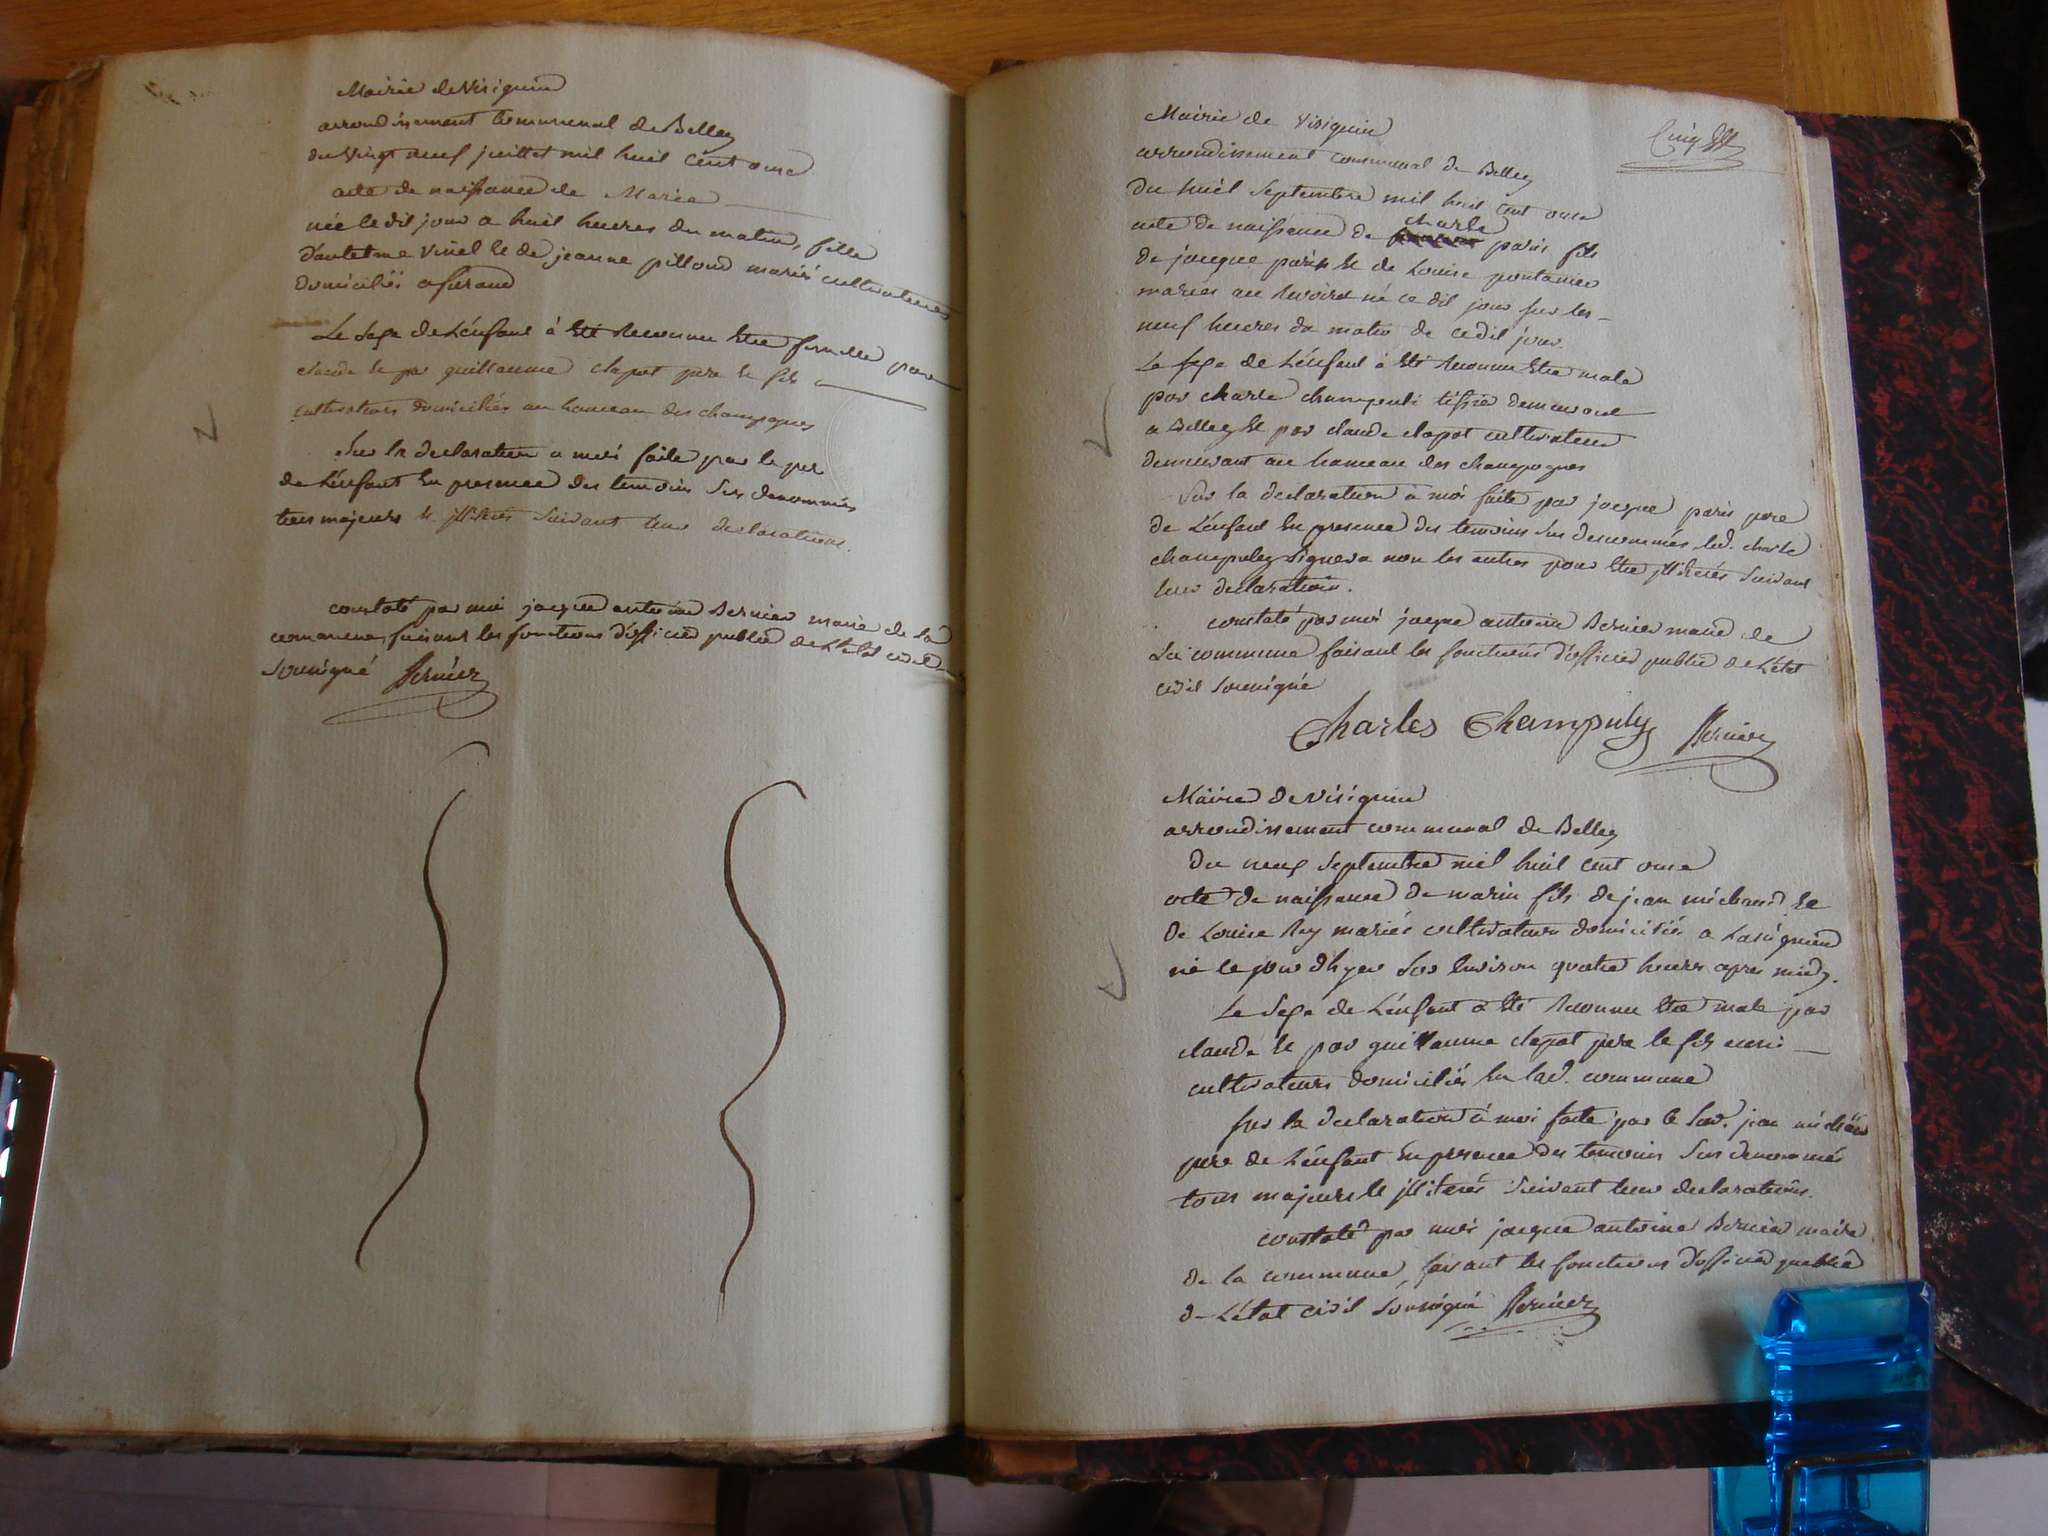 Mairie de Virignin
arrondissement communal de Belley
du vingt neuf juillet mil huit cent onze
acte de naissance de Marie
née le dit jour a huit heures du matin, fille
d'antelme vinel et de jeanne pilloud mariés cultivateurs
domiciliés a furand
Le sexe de L'enfant à été reconnu être femelle par
claude et par guillaume clapot pere et fils
cultivateurs domiciliés au hameau des champagnes
Sur la declaration a moi faite par le pere
de L'enfant En presence des temoins sus denommés
tous majeurs et illiterés suivant leur declarations.
constaté par moi jacque antoine Bernier maire de la
commune, faisant les fonctions d'officier public de L'etat civil
soussigné Bernier
Cinq
Mairie de Virignin
arrondissement communal de Belley
du huit septembre mil huit cent onze
acte de naissance de charle paris fils
de jacque paris et de Louise pontanier
mariés au né ce dit jour sur les
neuf heures du matin de cedit jour.
Le sexe de L'enfant à été reconnu être male
par charle tissier demeurant
a Belley et par claude clapot cultivateur
demeurant au hameau des champagnes
Sur la declaration à moi faite par jacque paris pere
de L'enfant En presence des temoins sus denommés led. charle
champuley signera non les autres pour être illiterés suivant
leur declaration.
constaté par moi jacque antoine Bernier maire de
La commune faisant les fonctions d'officier public de L'état
civil soussigné
Charles Champuly Bernier
Mairie de Virignin
arrondissement communal de Belley
Du neuf septembre mil huit cent onze
acte de naissance de marin fils de jean michaud et
de Louise Rey mariés cultivateurs domiciliés a
né le jour d'hyer sur environ quatre heures apres midy.
Le sexe de L'enfant à été reconnu être male par
claude et par guillaume clapot pere et fils aussi
cultivateurs domiciliés En lad. commune
sur la declaration à moi faite par le jean michaud
pere de L'enfant En presence des temoins sus denommés
tous majeurs et illiterés suivant leur declarations.
constaté par moi jacque antoine Bernier maire
de la commune, faisant les fonctions d'officier public
de L'état civil soussigné Bernier